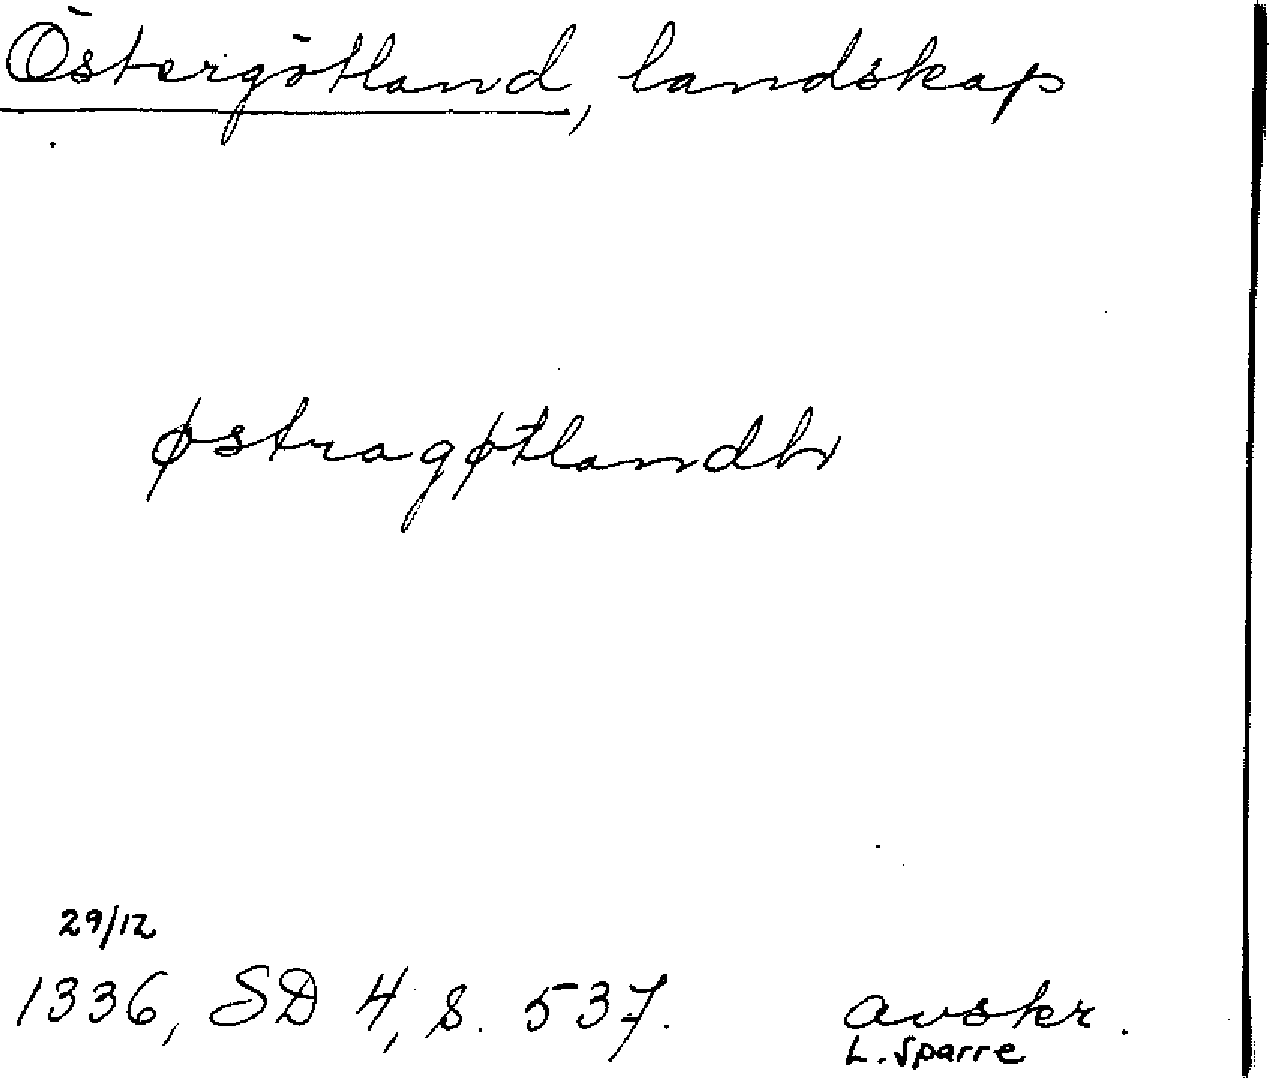 Östergötland, landskap
østragøtlandh
29/12
1336, SD 4, s. 537. avskr.
L. Sparre